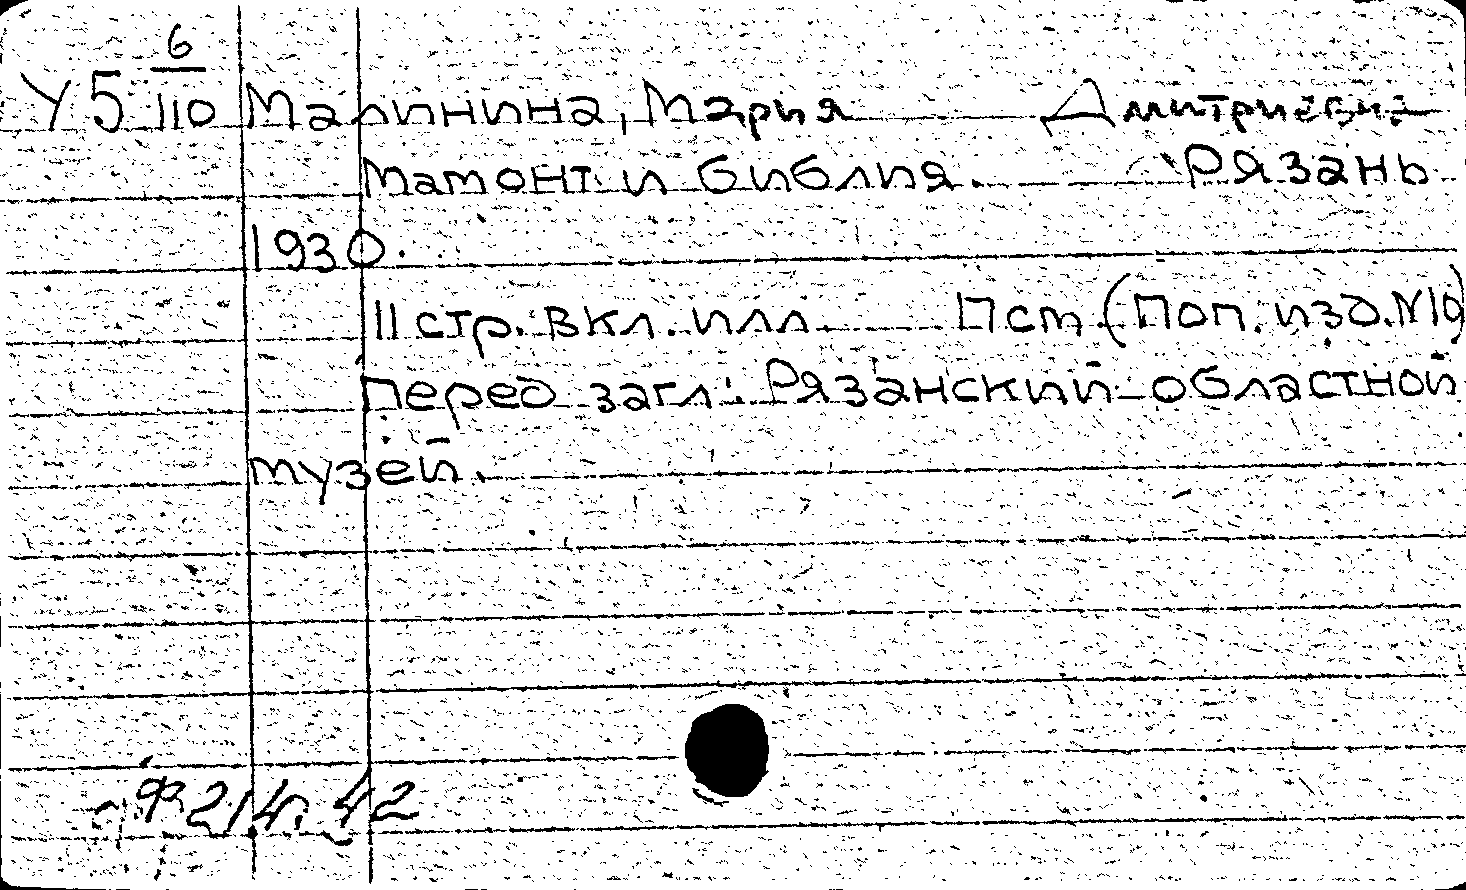 У5 6/110 Малинина, Мария Дмитриевна
Мамонт и библия. Рязань
1930.
11 стр. вкл. илл. 17 см (Поп. изд. №10)
Перед загл.: Рязанский областной
музей.